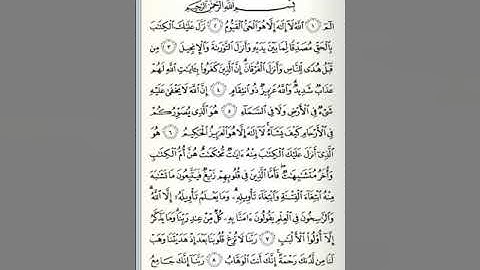 بِسْمِ اللَّهِ الرَّحْمَٰنِ الرَّحِيمِ
الٓمٓ ١ اللَّهُ لَا إِلَٰهَ إِلَّا هُوَ الْحَيُّ الْقَيُّومُ ٢ نَزَّلَ عَلَيْكَ الْكِتَٰبَ
بِالْحَقِّ مُصَدِّقًا لِّمَا بَيْنَ يَدَيْهِ وَأَنزَلَ التَّوْرَىٰةَ وَالْإِنجِيلَ ٣ مِن
قَبْلُ هُدًى لِّلنَّاسِ وَأَنزَلَ الْفُرْقَانَ إِنَّ الَّذِينَ كَفَرُوا بِـَٔايَٰتِ اللَّهِ لَهُمْ
عَذَابٌ شَدِيدٌ وَاللَّهُ عَزِيزٌ ذُو انتِقَامٍ ٤ إِنَّ اللَّهَ لَا يَخْفَىٰ عَلَيْهِ
شَىْءٌ فِي الْأَرْضِ وَلَا فِي السَّمَآءِ ٥ هُوَ الَّذِي يُصَوِّرُكُمْ
فِي الْأَرْحَامِ كَيْفَ يَشَآءُ لَا إِلَٰهَ إِلَّا هُوَ الْعَزِيزُ الْحَكِيمُ ٦ هُوَ
الَّذِيٓ أَنزَلَ عَلَيْكَ الْكِتَٰبَ مِنْهُ ءَايَٰتٌ مُّحْكَمَٰتٌ هُنَّ أُمُّ الْكِتَٰبِ
وَأُخَرُ مُتَشَٰبِهَٰتٌ فَأَمَّا الَّذِينَ فِي قُلُوبِهِمْ زَيْغٌ فَيَتَّبِعُونَ مَا تَشَٰبَهَ
مِنْهُ ابْتِغَآءَ الْفِتْنَةِ وَابْتِغَآءَ تَأْوِيلِهِ وَمَا يَعْلَمُ تَأْوِيلَهُ إِلَّا اللَّهُ
وَالرَّٰسِخُونَ فِي الْعِلْمِ يَقُولُونَ ءَامَنَّا بِهِ كُلٌّ مِّنْ عِندِ رَبِّنَا وَمَا يَذَّكَّرُ
إِلَّآ أُولُوا الْأَلْبَٰبِ ٧ رَبَّنَا لَا تُزِغْ قُلُوبَنَا بَعْدَ إِذْ هَدَيْتَنَا وَهَبْ
لَنَا مِن لَّدُنكَ رَحْمَةً إِنَّكَ أَنتَ الْوَهَّابُ ٨ رَبَّنَآ إِنَّكَ جَامِعُ